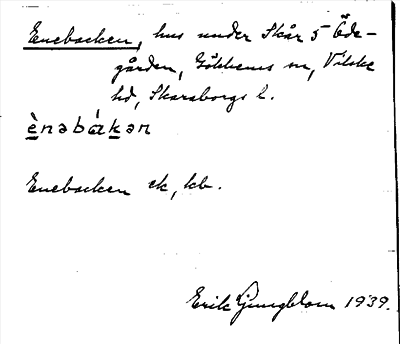 Enebacken, hus under Skår 5 Öde-
gården, Gökhems sn, Vilske
hd, Skaraborgs l.
ènəbàkən
Enebacken ek, kb.
Erik Ljungblom 1939.